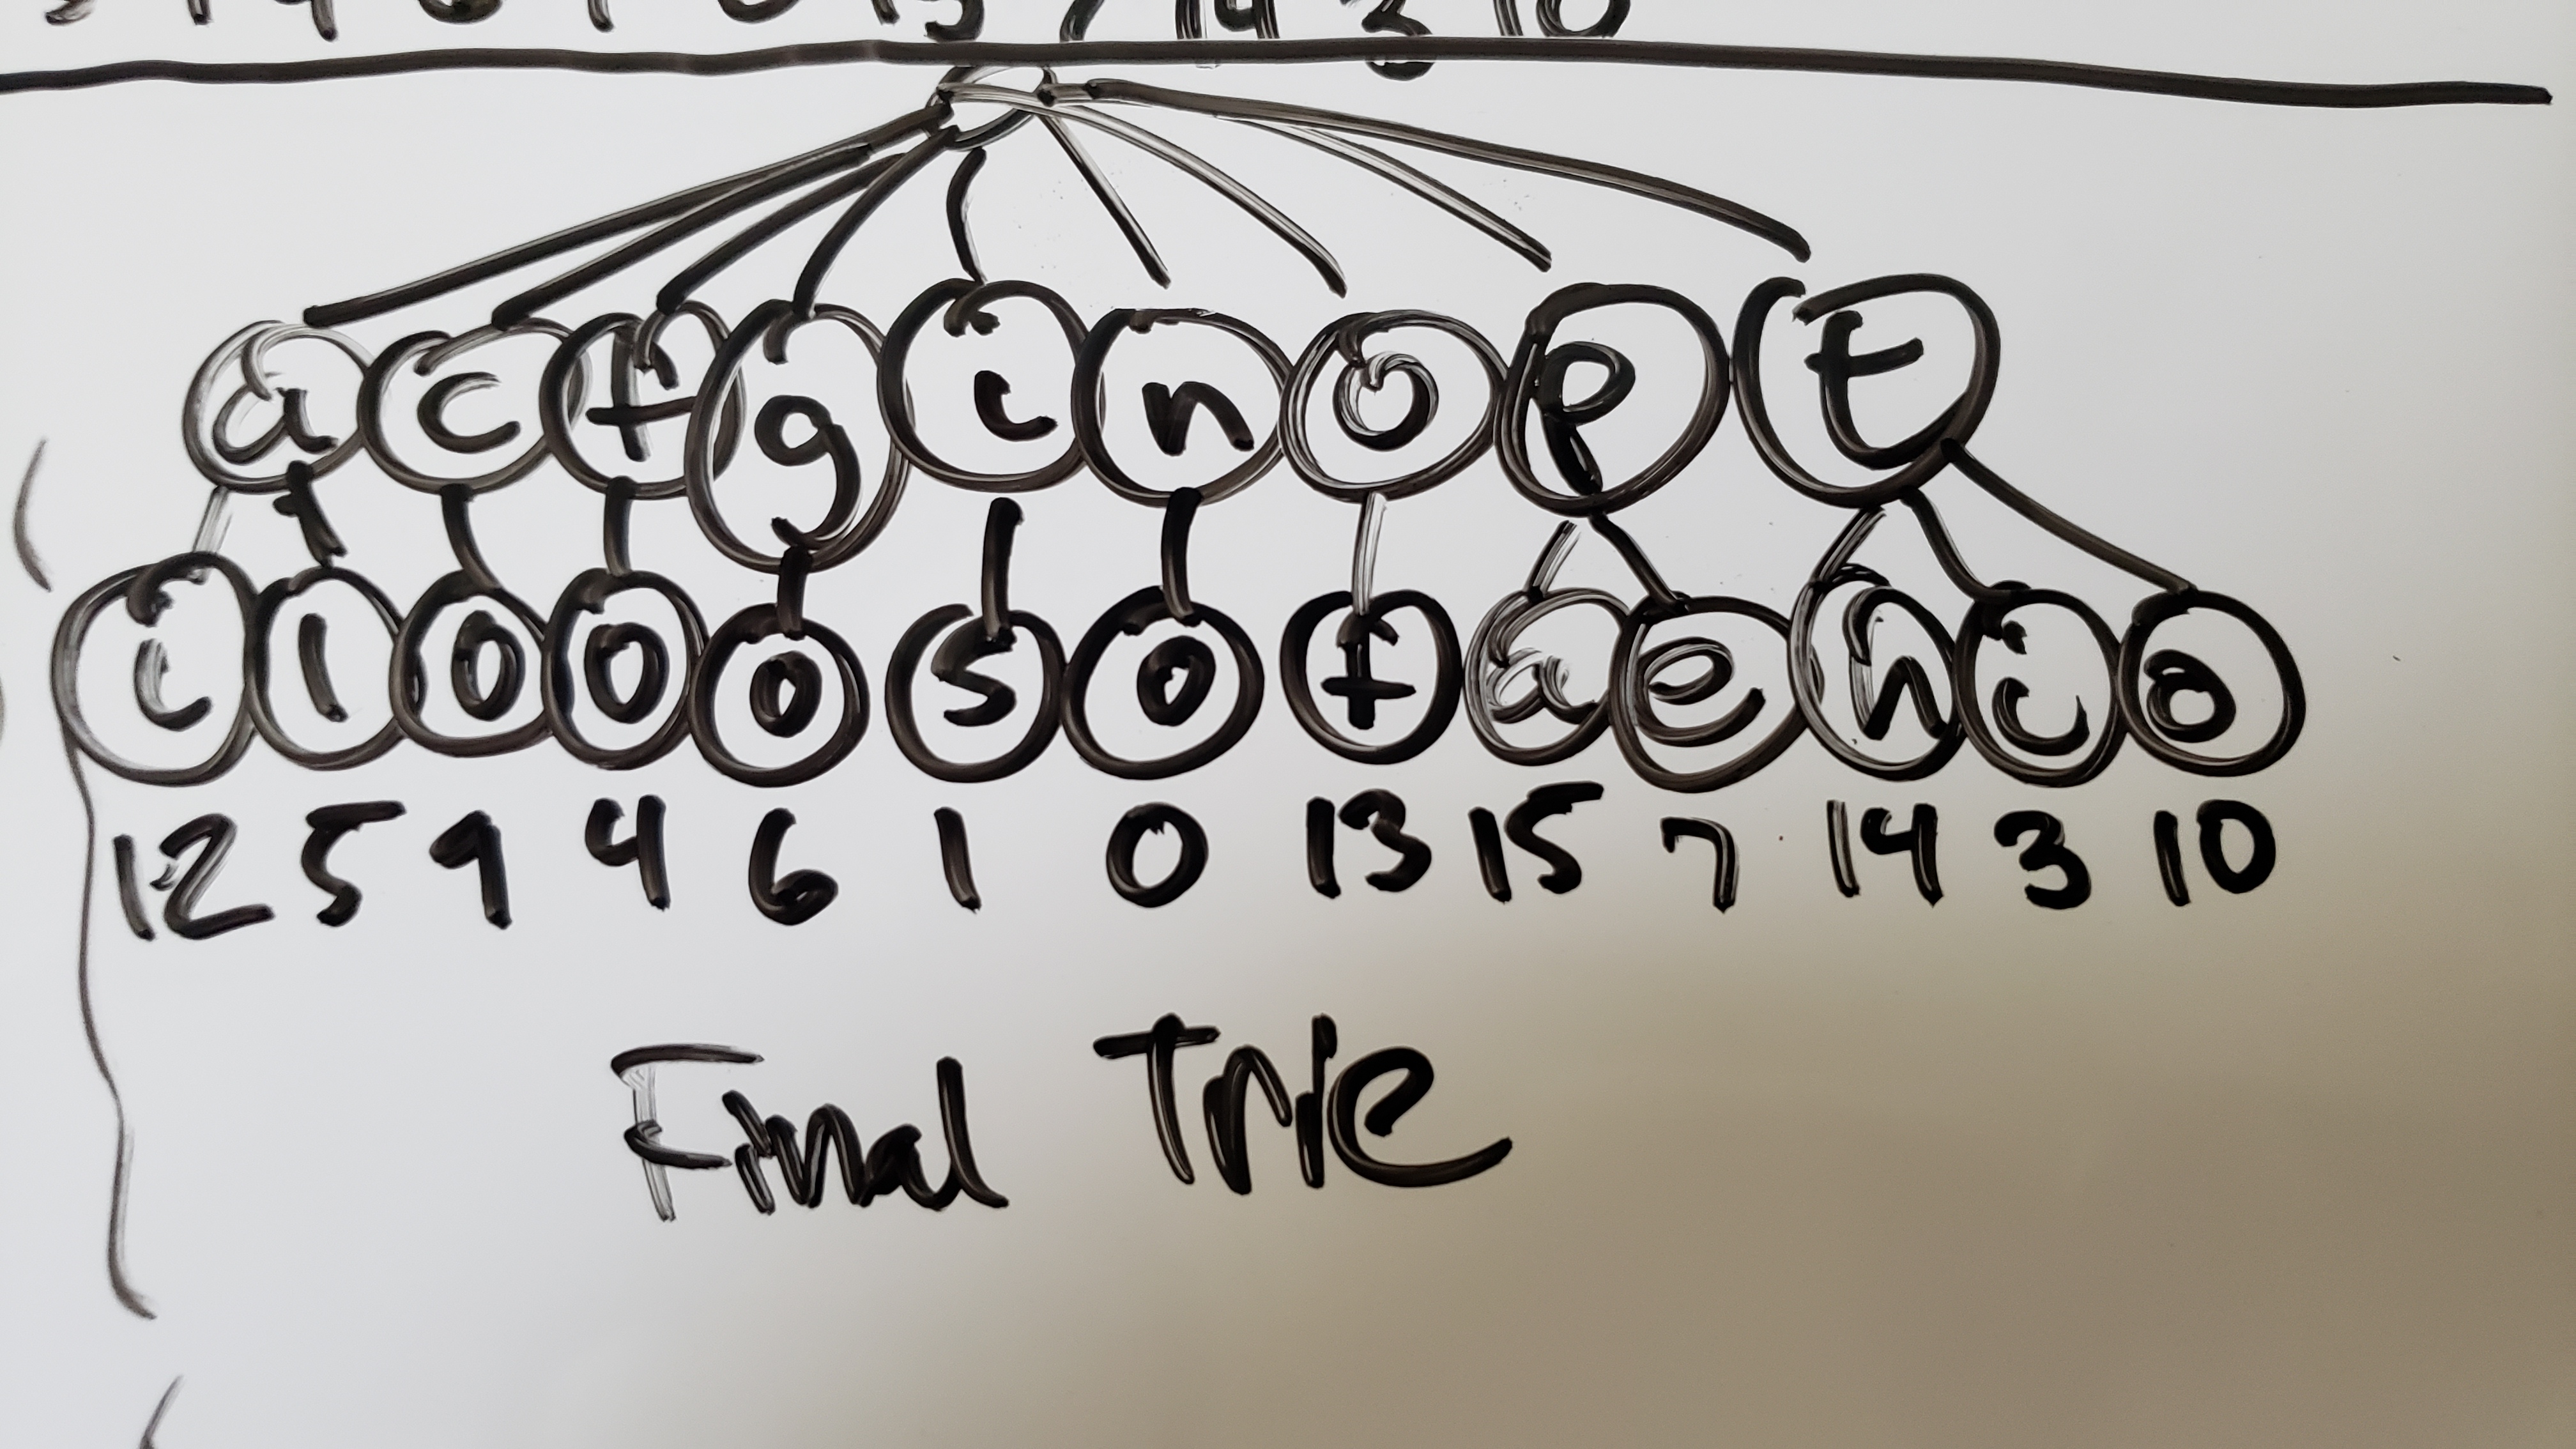 14 3 10
a c f g i n o p t
i l o o o s o f a e h i o
12 5 9 4 6 1 0 13 15 7 14 3 10
Final Trie